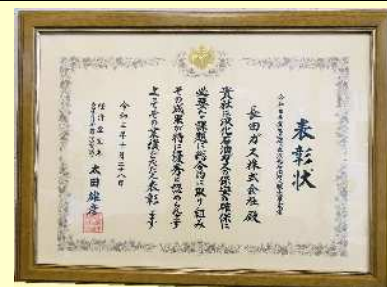 表彰状
長田ガス株式会社 殿
貴社は液化石油ガスの保安の確保に
必要な課題に総合的に取り組み
その成果が特に優秀と認められます
よってその業績をたたえ表彰します
令和元年十月二十八日
太田 雄彦